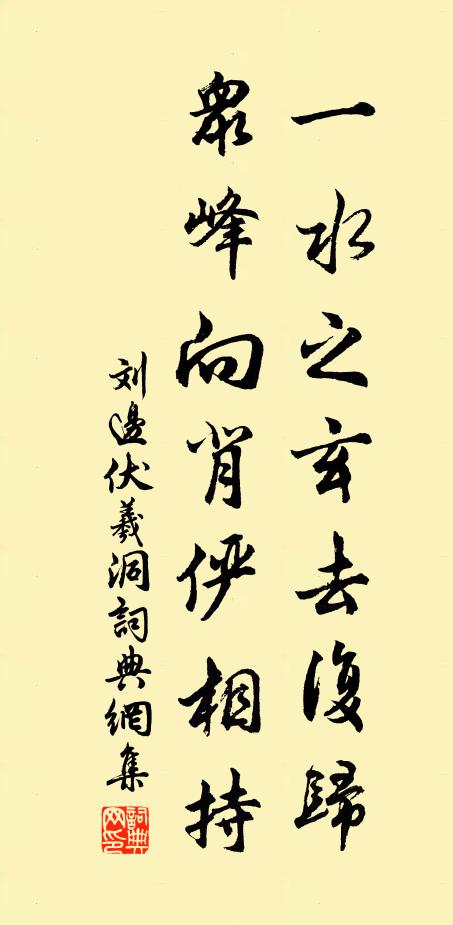 一水之玄去復歸
衆峰向背俨相持
刘邊伏羲洞詞典網集
詞典网印